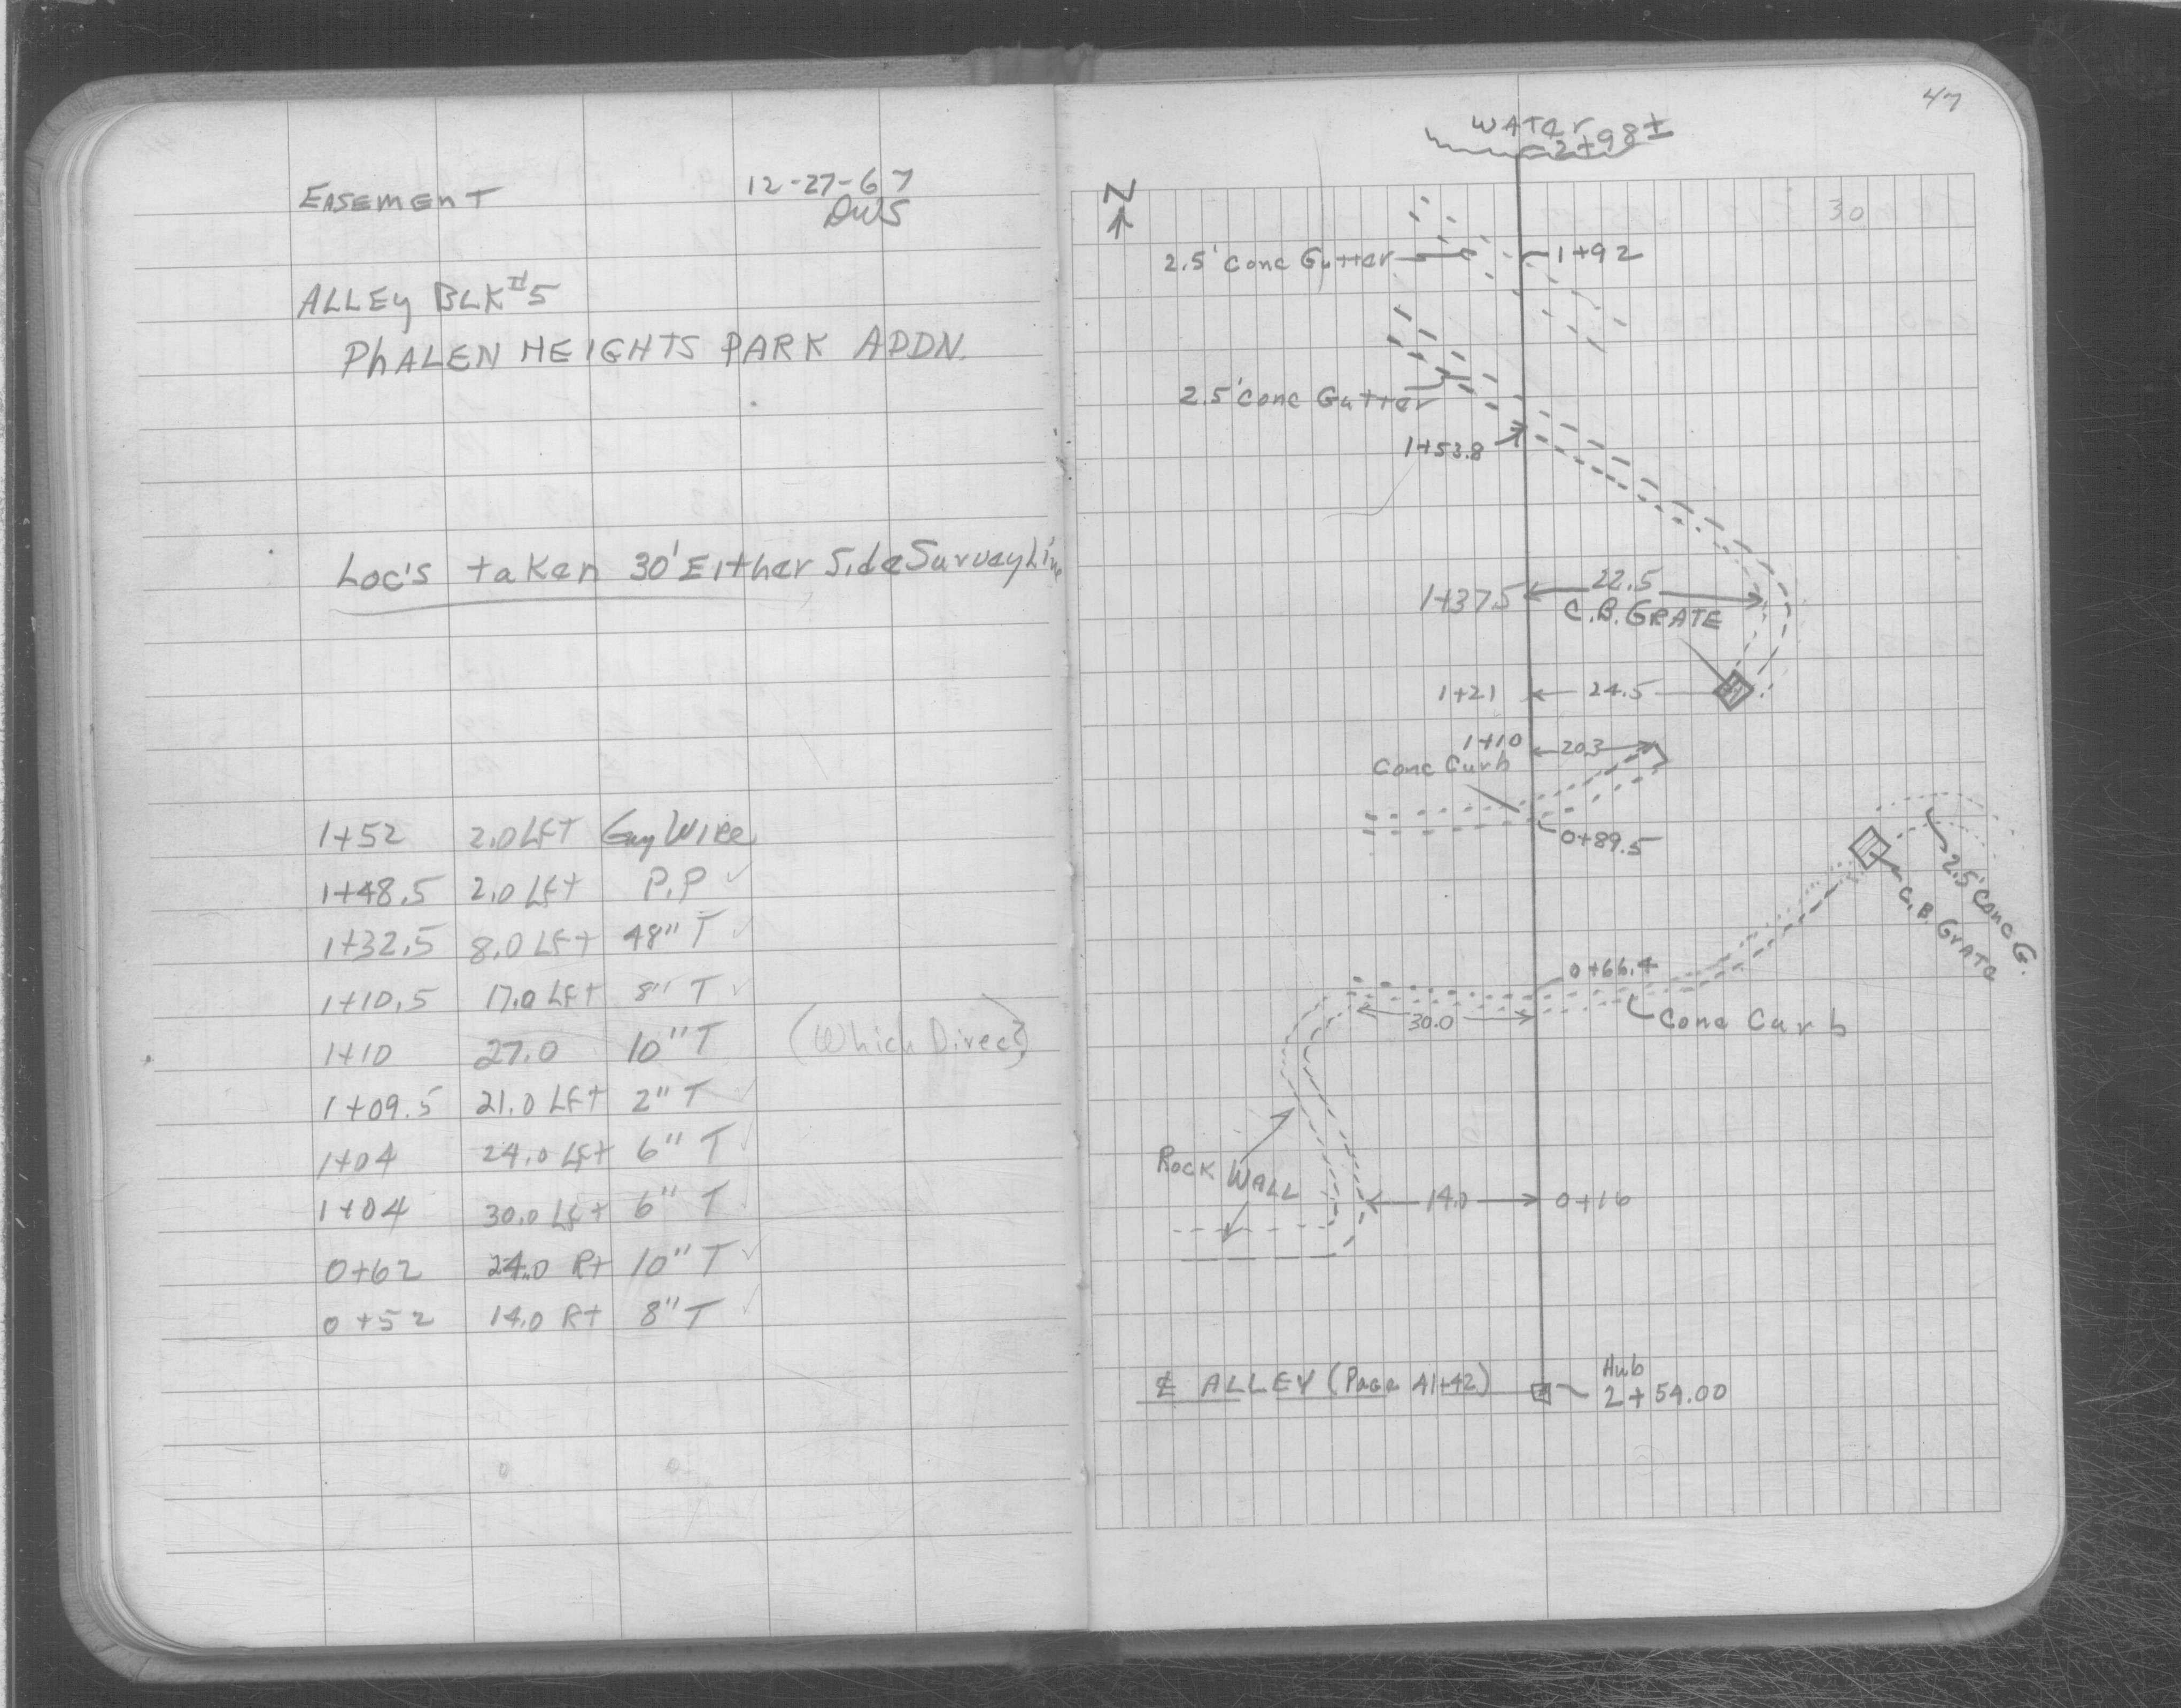 EASEMENT 12-27-67
DWS
ALLEY BLK #5
PHALEN HEIGHTS PARK ADDN.
Loc's taken 30' Either Side Survey Line
1+52 2.0 LFT Guy Wire
1+48.5 2.0 LFt P.P ✓
1+32.5 8.0 LFt 48" T ✓
1+10.5 17.0 LFt 8" T ✓
1+10 27.0 10" T (Which Direc?)
1+09.5 21.0 LFt 2" T ✓
1+04 24.0 LFt 6" T ✓
1+04 30.0 LFt 6" T ✓
0+62 24.0 Rt 10" T ✓
0+52 14.0 Rt 8" T ✓
47
WATER
2+98±
N
30
2.5' Conc Gutter 1+92
2.5' Conc Gutter
1+53.8
1+37.5 22.5
C.B. GRATE
1+21 24.5
1+10 20.3
Conc Curb
0+89.5
2.5' Conc G.
C.B. GRATE
0+66.4
30.0 Conc Curb
ROCK WALL
14.0 0+16
Hub
℄ ALLEY (Page 41+42) 2+54.00